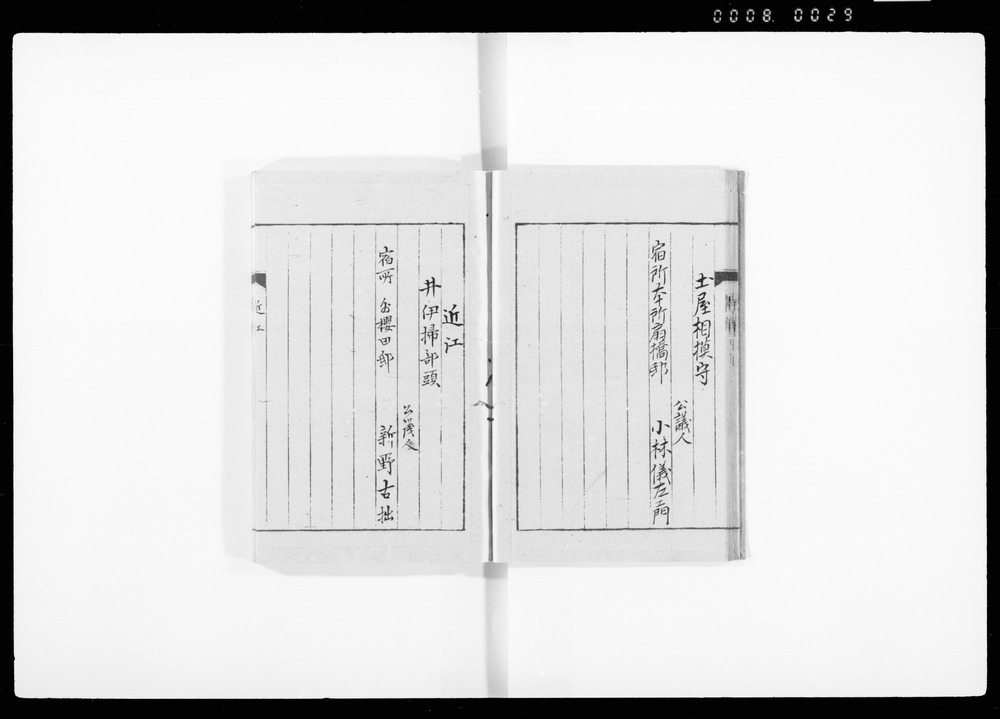 0008 0029
土屋相摸守
公議人
宿所本所扇橋邸
小林儀左エ門
近江
井伊掃部頭
公議人
宿所
櫻田邸
新野古拙
近江